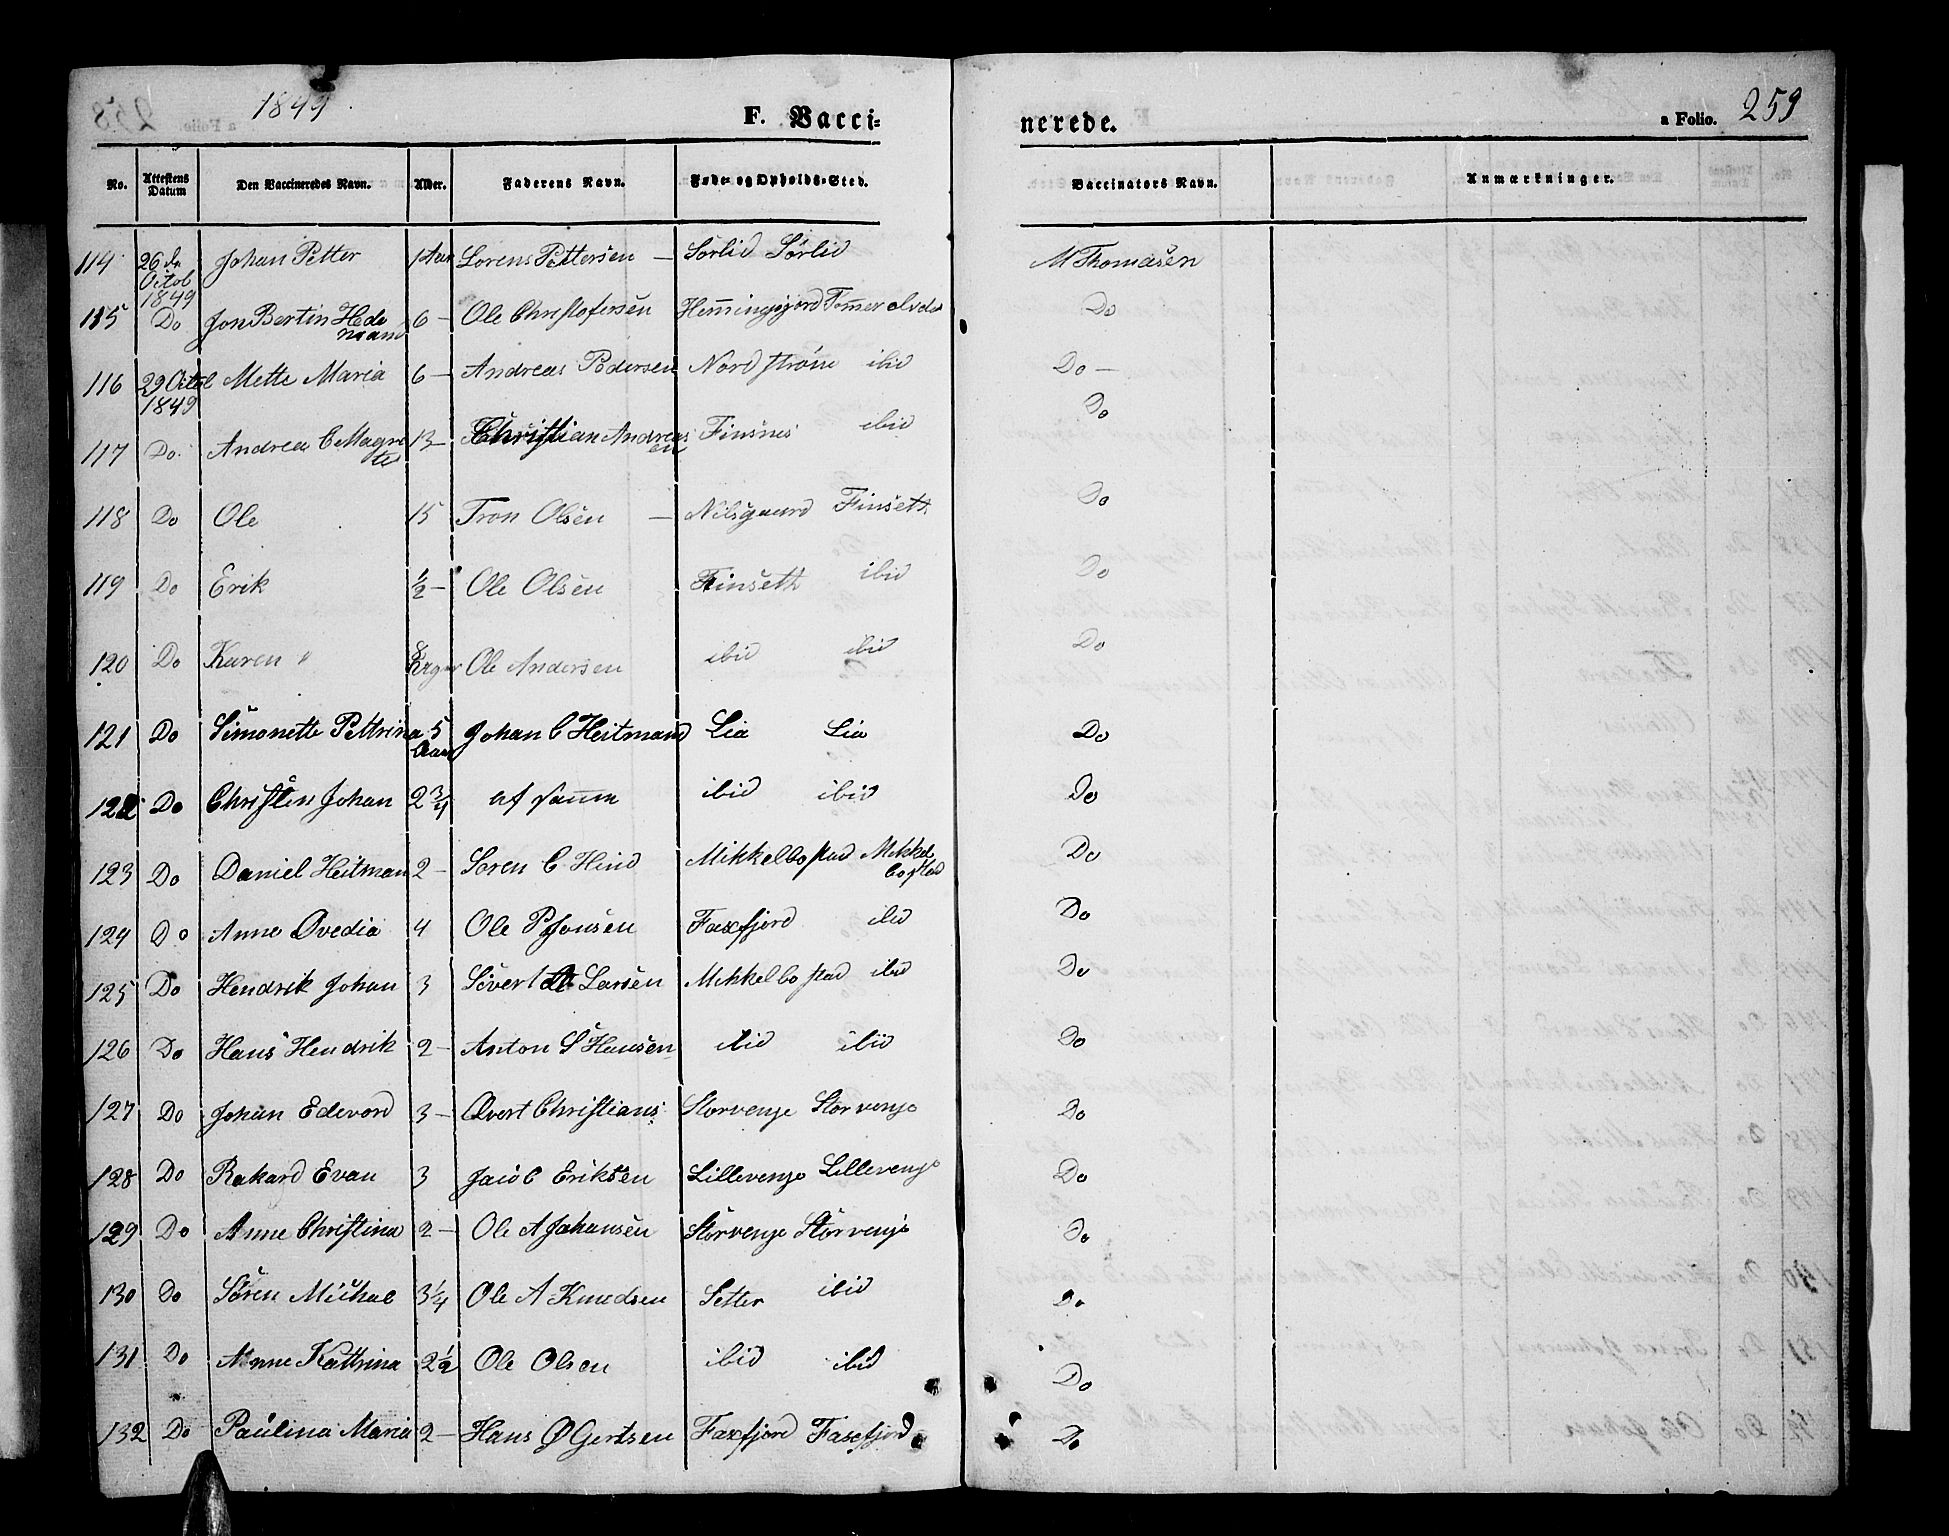 1849
F. Vacci-
nerede.
a Folio. 259
No. Attestens Datum Den Vaccineredes Navn. Alder. Faderens Navn. Føde- og Opholds-Sted. Vaccinators Navn. Anmærkninger.
114 26 de Octob 1849 Johan Petter 1 Aar Lorens Pettersen — Sörlid Sörlid M Thomasen
115 Do Jon Bertin Hede mand 6 — Ole Christofersen Hemmingsjord Tommerelvda Do
116 29 Octob 1849 Mette Maria 6 — Andreas Pedersen Nordströne ibid Do —
117 Do. Andrea C Magre te 13 — Christian Andreas en Finsnes ibid Do
118 Do Ole 15 Tron Olsen — Nilsgaard Finseth Do
119 Do Erik ½ — Ole Olsen Finseth ibid Do
120 Do Karen 8 Uger Ole Andersen ibid ibid Do
121 Do Simonette Pettrina 5 Aar Johan C Heitmand Lia Lia Do
122 Do Christen Johan 2 ¾ af samme ibid ibid Do
123 Do Daniel Heitman 2 — Soren C Hind Mikkelbostad Mikkel bostad Do
124 Do Anne Ovedia 4 Ole P Jonsen Faxfjord ibid Do
125 Do Hendrik Johan 3 Sivert Larsen Mikkelbostad ibid Do
126 Do Hans Hendrik 2 — Anton S Hansen ibid ibid Do
127 Do Johan Edevord 3 — Evert Christians: Storvenje Storvenje Do
128 Do Rakard Evan 3 Jacob Eriksen Lillevenje Lillevenje Do
129 Do Anne Christina 2 — Ole A Johansen Storvenje Storvenje Do
130 Do Sören Michal 3 ¼ Ole A Knudsen Setter ibid Do
131 Do Anne Kattrina 2 ½ Ole Olsen ibid ibid Do
132 Do Paulina Maria 2 — Hans Ø Gertsen Faxfjord Faxefjord Do